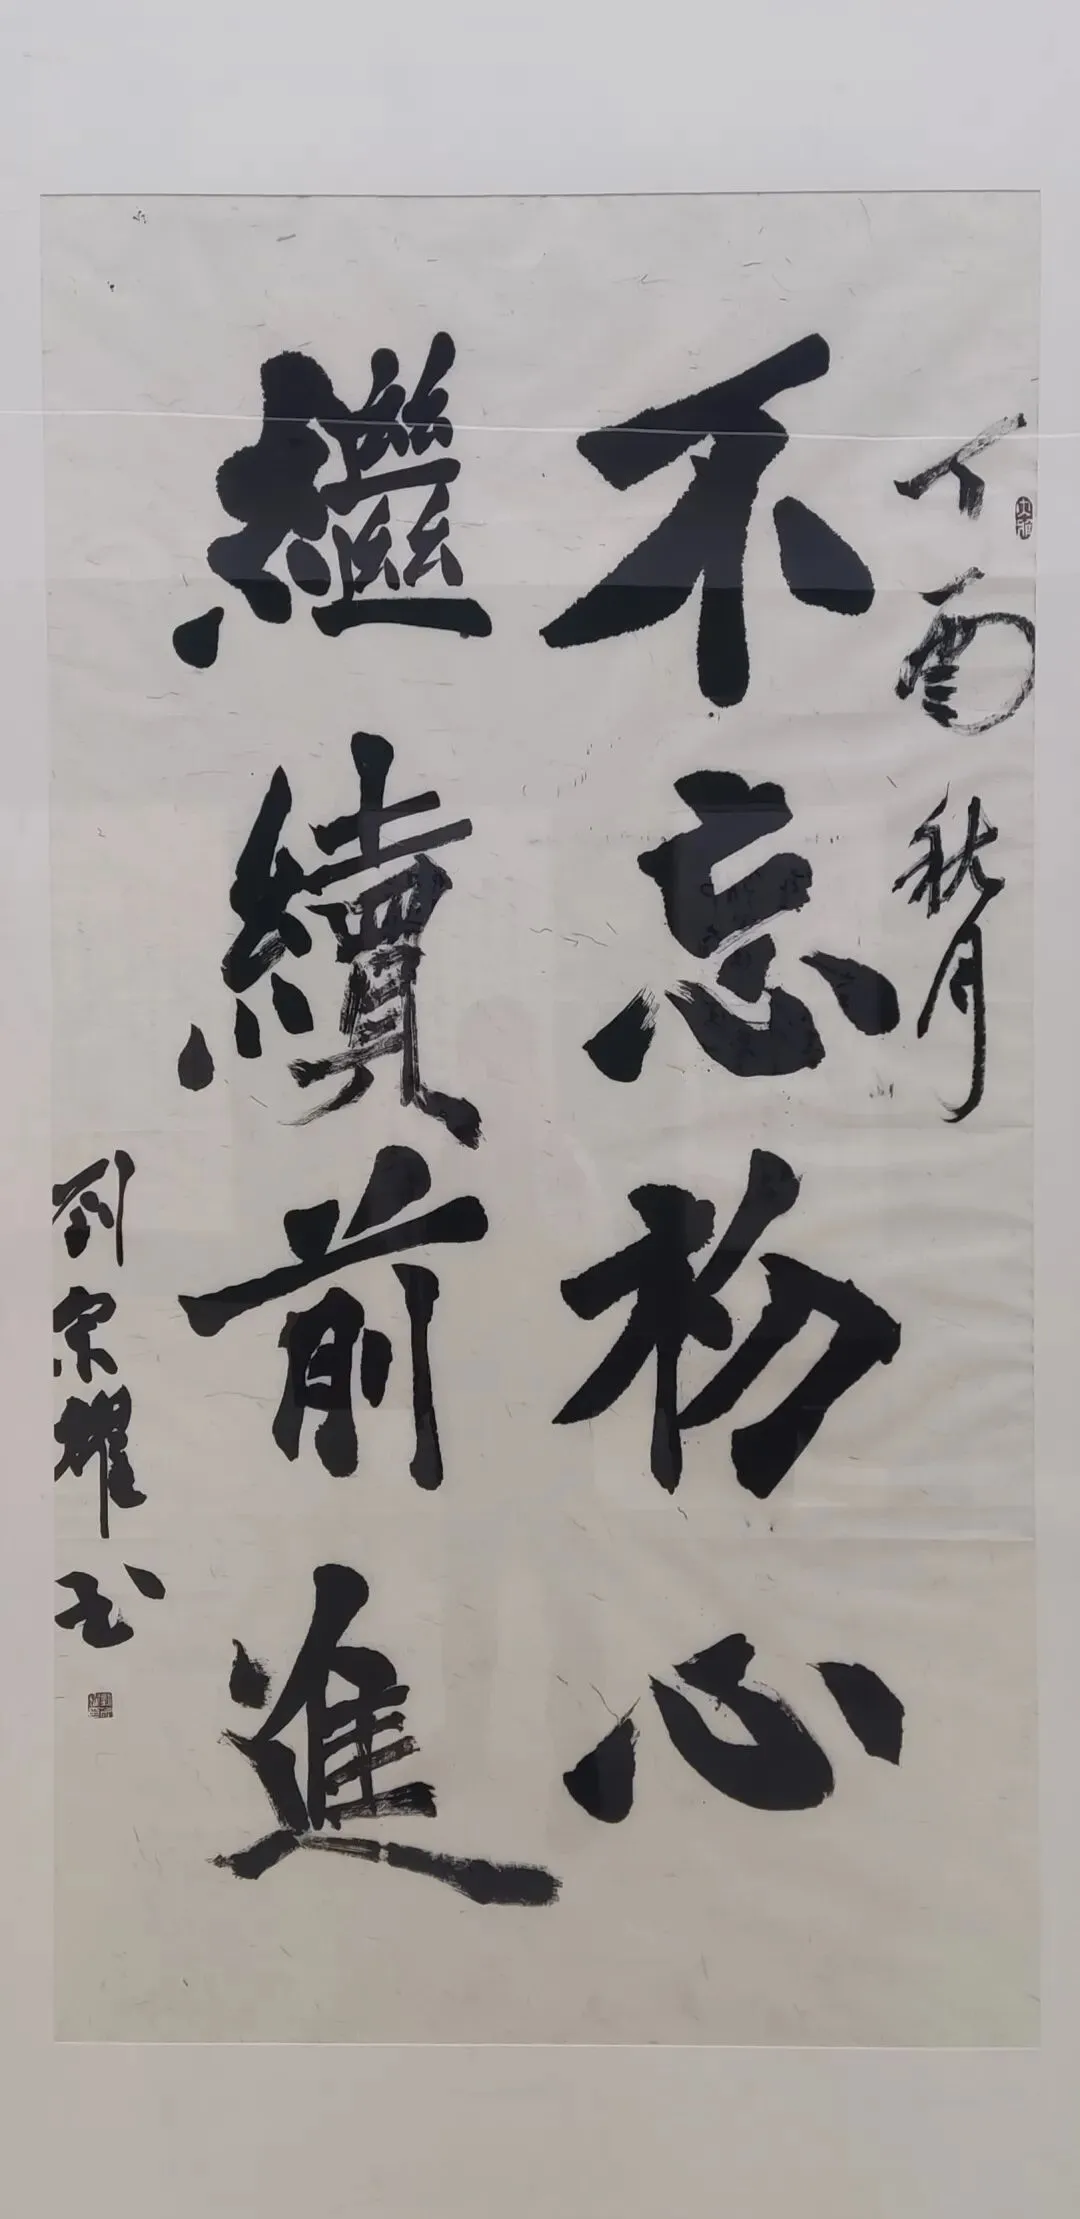 丁酉秋月
不忘初心
繼續前進
劉宗耀書